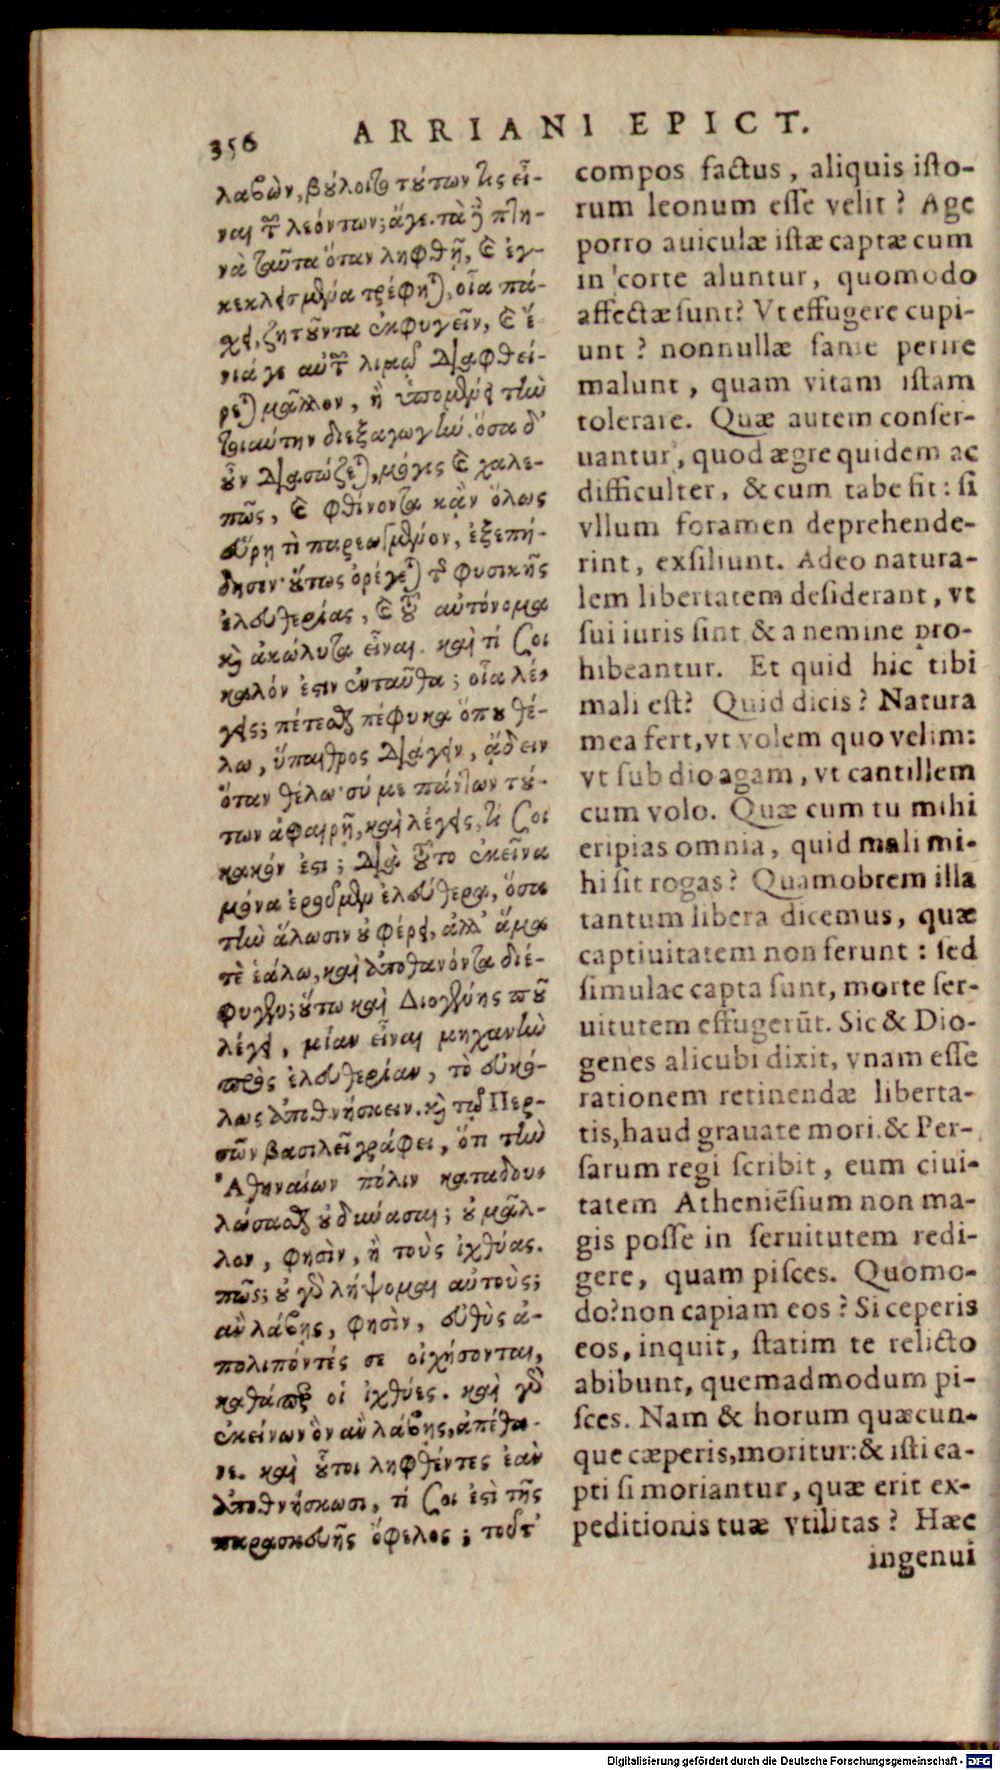 356 ARRIANI EPICT.
λαβὼν, βούλοιτο τούτων τὶς εἶ-
ναι τῶν λεόντων; ἄγε. τὰ δὲ πτη-
νὰ ταῦτα ὅταν ληφθῇ, καὶ ἐγ-
κεκλεισμένα τρέφηται, οἷα πά-
χει, ζητοῦντα ἐκφυγεῖν, καὶ ἔ-
νιά γε αὐτῶν λιμῷ διαφθεί-
ρεται μᾶλλον, ἢ ὑπομένει τὴν
τοιαύτην διεξαγωγήν. ὅσα δ'
οὖν διασώζεται, μόγις καὶ χαλε-
πῶς, καὶ φθίνοντα κἂν ὅλως
εὕρῃ τὶ παρεῳσμένον, ἐξεπή-
δησιν· οὕτως ὀρέγεται τῆς φυσικῆς
ἐλευθερίας, καὶ τοῦ αὐτόνομα
καὶ ἀκώλυτα εἶναι. καὶ τί σοι
κακόν ἐστιν ἐνταῦθα; οἷα λέ-
γεις; πέτεσθαι πέφυκα ὅπου θέ-
λω, ὕπαιθρος διάγειν, ᾄδειν
ὅταν θέλω· σύ με πάντων τού-
των ἀφαιρῇ, καὶ λέγεις, τί σοι
κακόν ἐστι; διὰ τοῦτο ἐκεῖνα
μόνα ἐροῦμεν ἐλεύθερα, ὅσα
τὴν ἅλωσιν οὐ φέρει, ἀλλ' ἅμα
τὲ ἑάλω, καὶ ἀποθανόντα διέ-
φυγεν; οὕτω καὶ Διογένης ποῦ
λέγει, μίαν εἶναι μηχανὴν
πρὸς ἐλευθερίαν, τὸ εὐκό-
λως ἀποθνήσκειν. καὶ τῷ Περ-
σῶν βασιλεῖ γράφει, ὅτι τὴν
Ἀθηναίων πόλιν καταδου-
λώσασθαι οὐ δύνασαι; οὐ μᾶλ-
λον, φησὶν, ἢ τοὺς ἰχθύας.
πῶς; οὐ γὰρ λήψομαι αὐτοὺς;
ἂν λάβῃς, φησὶν, εὐθὺς ἀ-
πολιπόντές σε οἰχήσονται,
καθάπερ οἱ ἰχθύες. καὶ γὰρ
ἐκείνων ὃν ἂν λάβῃς, ἀπέθα-
νε. καὶ οὗτοι ληφθέντες ἐὰν
ἀποθνήσκωσι, τί σοι ἐστὶ τῆς
παρασκευῆς ὄφελος; τοῦτ'
compos factus, aliquis isto-
rum leonum esse velit? Age
porro auiculæ istæ captæ cum
in corte aluntur, quomodo
affectæ sunt? Vt effugere cupi-
unt? nonnullæ fame perire
malunt, quam vitam istam
tolerare. Quæ autem conser-
uantur, quod ægre quidem ac
difficulter, & cum tabe fit: si
vllum foramen deprehende-
rint, exsiliunt. Adeo natura-
lem libertatem desiderant, vt
sui iuris sint & a nemine pro-
hibeantur. Et quid hic tibi
mali est? Quid dicis? Natura
mea fert, vt volem quo velim:
vt sub dio agam, vt cantillem
cum volo. Quæ cum tu mihi
eripias omnia, quid mali mi-
hi sit rogas? Quamobrem illa
tantum libera dicemus, quæ
captiuitatem non ferunt: sed
simulac capta sunt, morte ser-
uitutem effugerūt. Sic & Dio-
genes alicubi dixit, vnam esse
rationem retinendæ liberta-
tis, haud grauate mori. & Per-
sarum regi scribit, eum ciui-
tatem Atheniēsium non ma-
gis posse in seruitutem redi-
gere, quam pisces. Quomo-
do? non capiam eos? Si ceperis
eos, inquit, statim te relicto
abibunt, quemadmodum pi-
sces. Nam & horum quæcun-
que cæperis, moritur: & isti ca-
pti si moriantur, quæ erit ex-
peditionis tuæ vtilitas? Hæc
ingenui
Digitalisierung gefördert durch die Deutsche Forschungsgemeinschaft - DFG